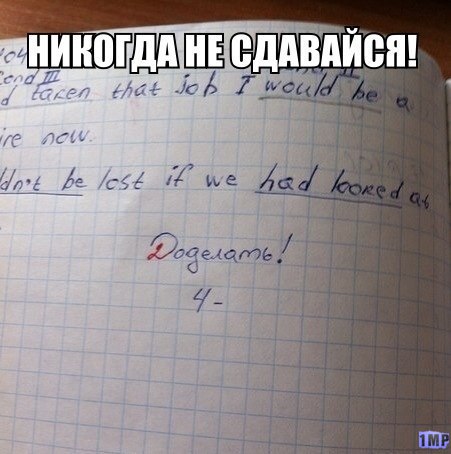 НИКОГДА НЕ СДАВАЙСЯ!
Cond III
d taken that job I would be a
ire now.
dn't be lost if we had looked at
Доделать!
4-
1MP